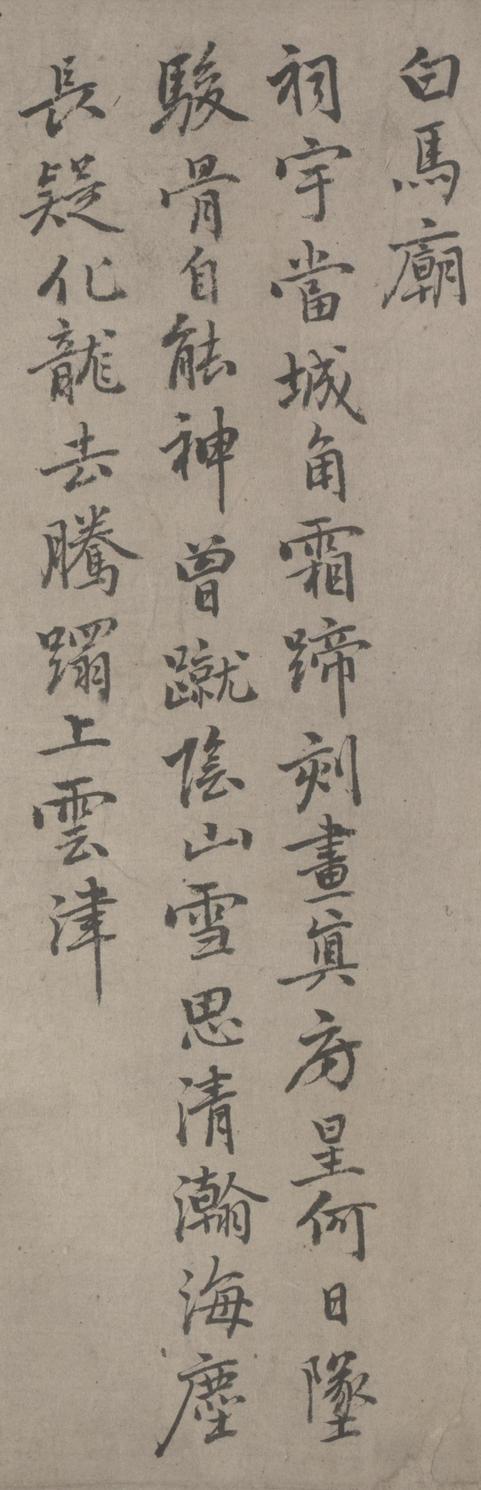 白馬廟
祠宇當城角霜蹄刻畫真房星何日墜
駿骨自能神曾蹴陰山雪思清瀚海塵
長疑化龍去騰躡上雲津